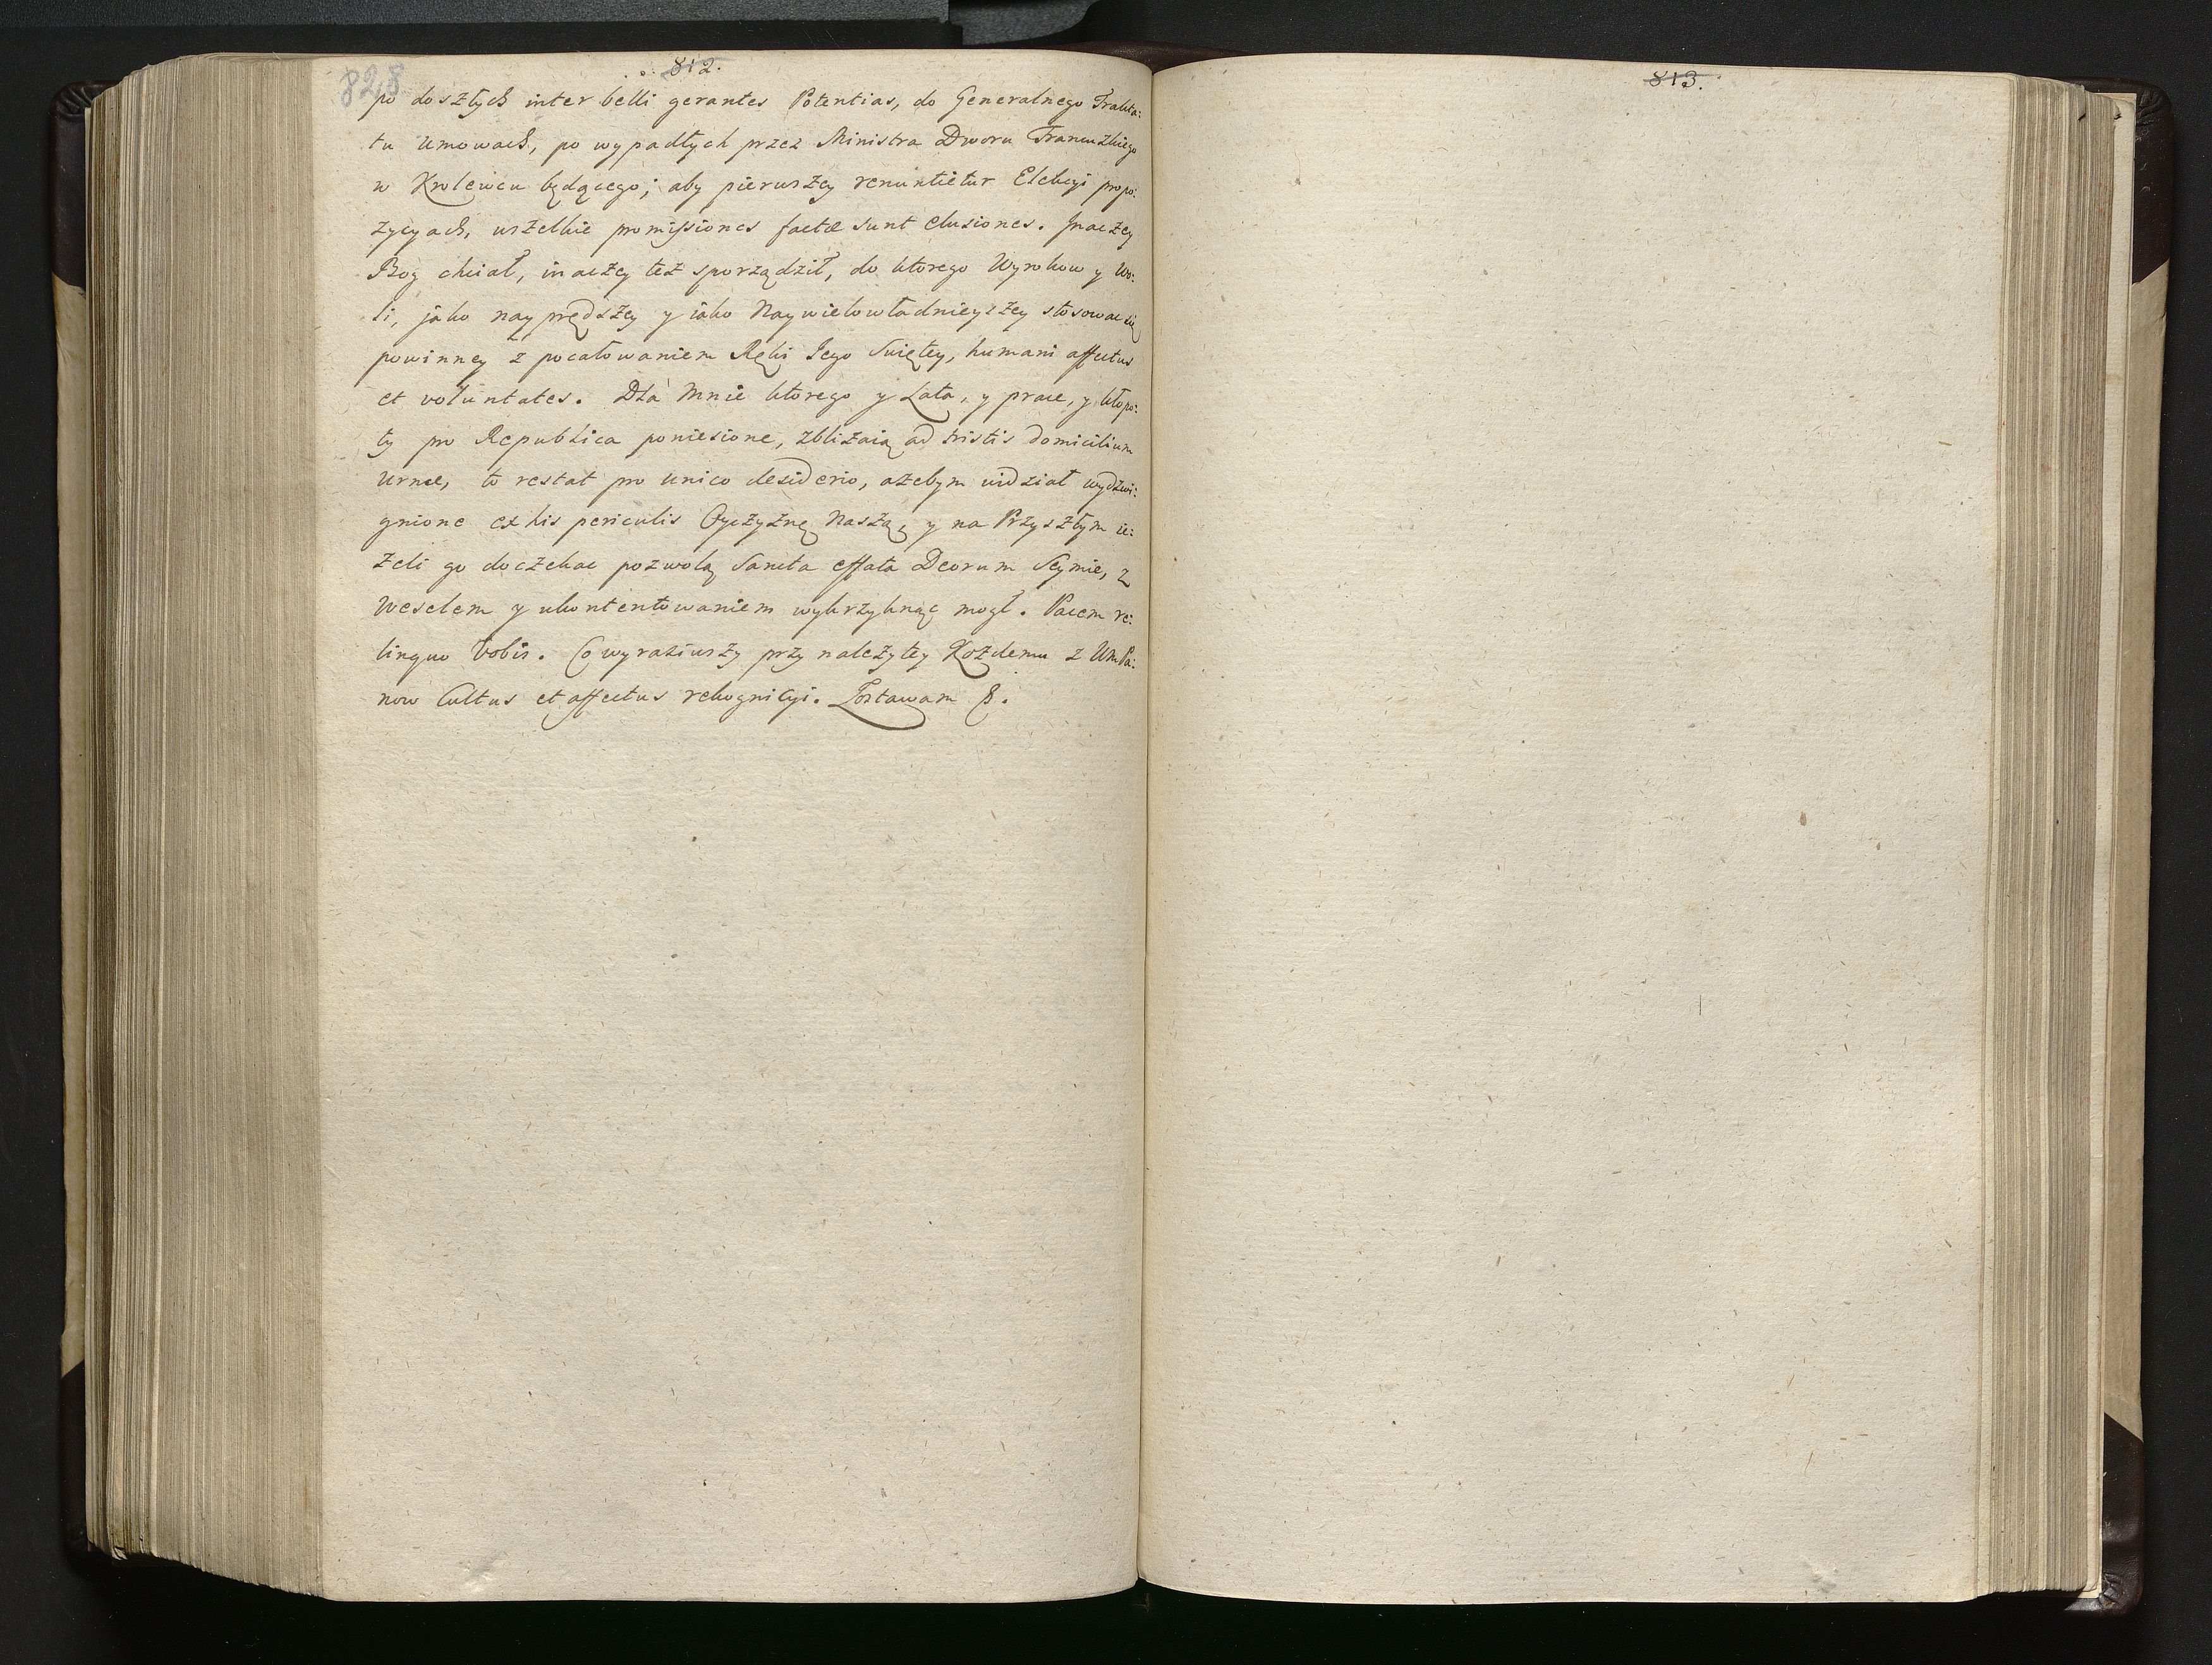 828
812.
po doszłych inter belli gerantes Potentias, do Generalnego Trakta:
tu umowach, po wypadłych przez Ministra Dworu Francuzkiego
w Krolewcu będącego; aby pierwszey renuntietur Elekcyi propo:
zycyach, wszelkie promissiones factæ sunt elusiones. Jnaczey
Bog chciał, inaczey też sporządził, do ktorego Wyrokow y Wo:
li, jako nayprędszey y iako Naywielowładnieyszey stosowac się
powinney z pocałowaniem Ręki Jego Swiętey, humani affectus
et voluntates. Dla Mnie ktorego y Lata, y prace, y kłopo:
ty pro Republica poniesione, zbliżaią ad tristis domicilium
urnæ, to restat pro unico desiderio, ażebym widział wydzwi:
gnione ex his periculis Oyczyznę Naszą, y na Przyszłym ie:
żeli go doczekac pozwolą Sancta effata Deorum Seymie, z
Weselem y ukontentowaniem wykrzyknąc mogł. Pacem re:
linquo Vobis. Co wyraziwszy przy należytey Kożdemu z WmPa:
now Cultus et affectus rekognicyi. Zostawam &.
813.